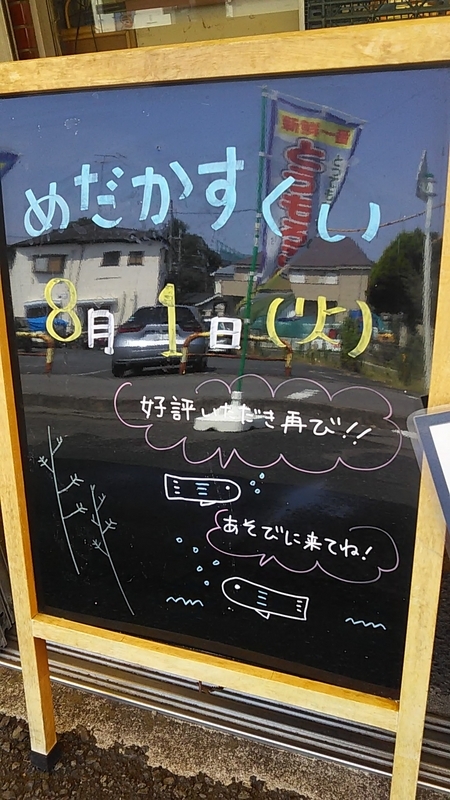 めだかすくい
8月1日(火)
好評いただき再び!!
あそびに来てね!